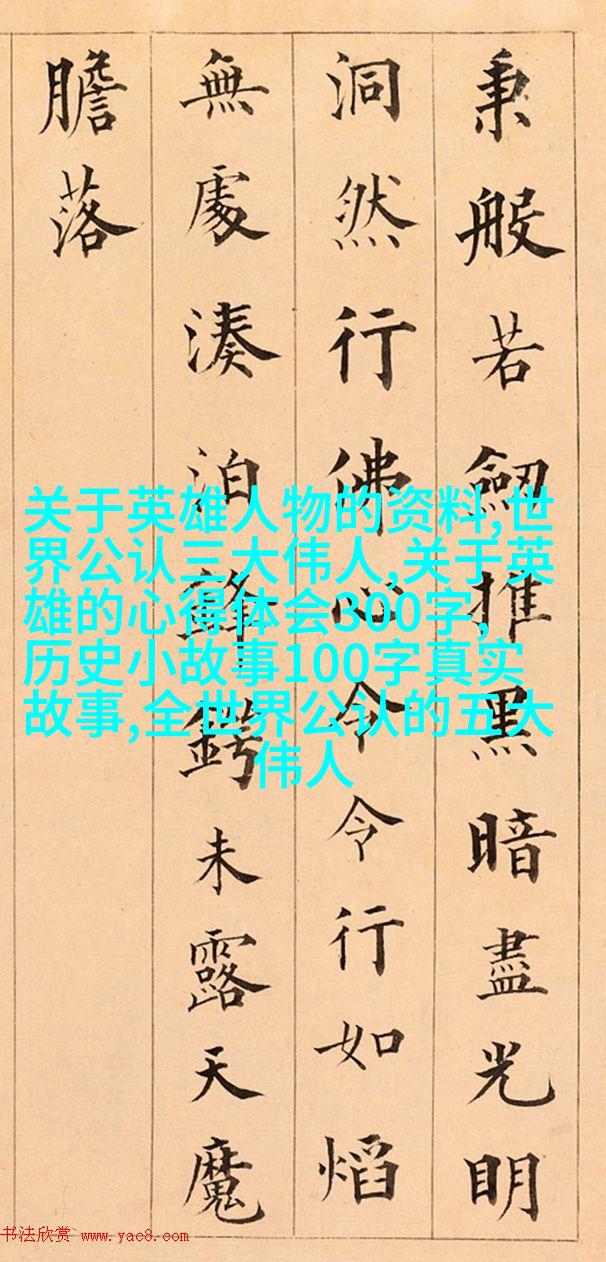 秉般若劔推黑暗盡光明
洞然行佛心令令行如熖
無處湊泊鋒鍔未露天魔
膽落
关于英雄人物的资料,世
界公认三大伟人,关于英
雄的心得体会300字,
历史小故事100字真实
故事,全世界公认的五大
伟人
书法欣赏 www.yac8.com